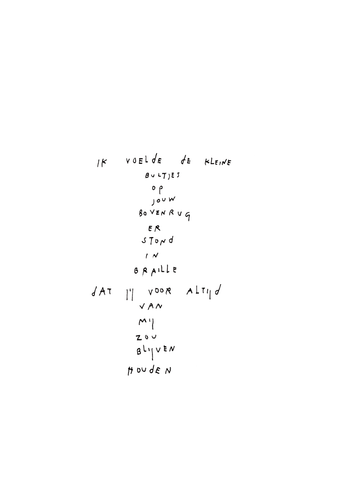 IK VOELdE dE KLEINE
BULTJES
OP
JOUW
BOVENRUG
ER
STOND
IN
BRAILLE
dAT JIJ VOOR ALTIJd
VAN
MIJ
ZOU
BLIJVEN
HOUdEN